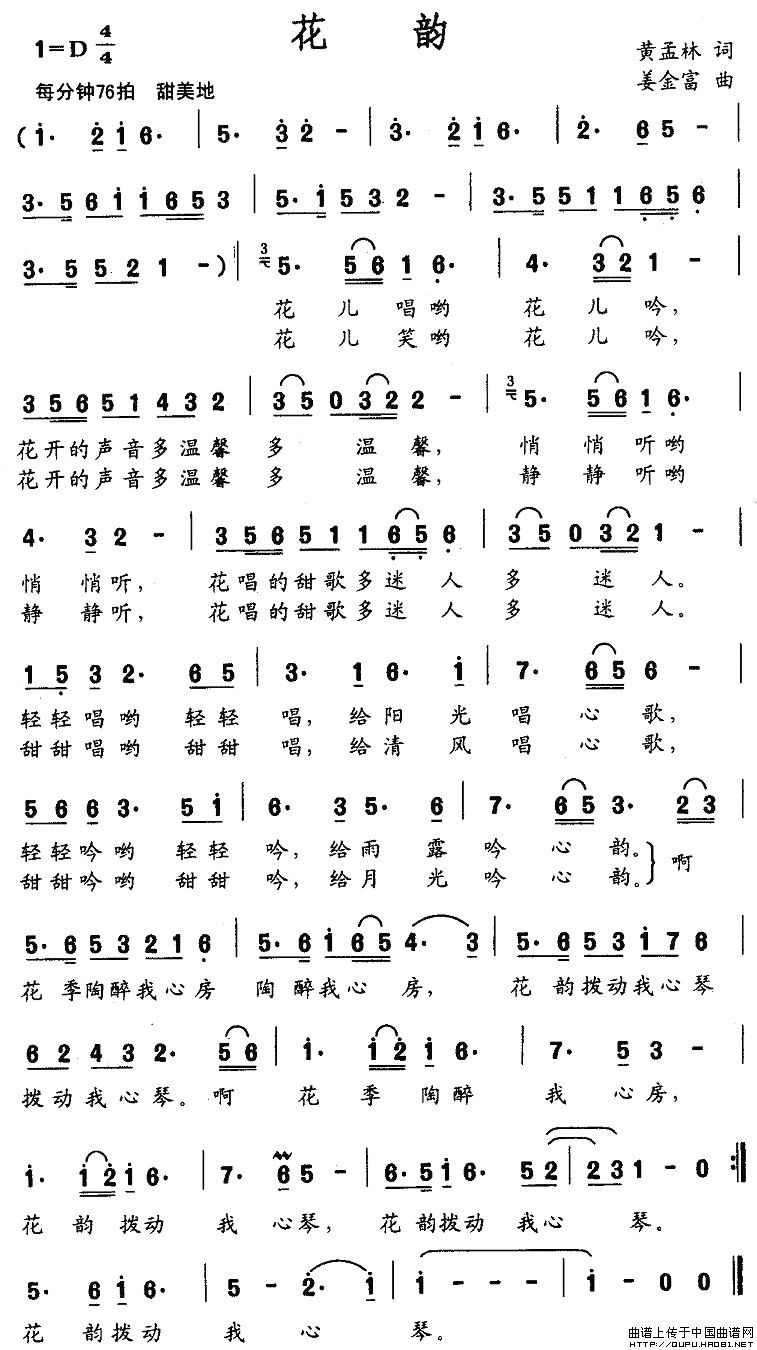 花 韵
1=D 4/4
黄孟林 词
每分钟76拍 甜美地
姜金富 曲
(i· 2̇ i 6· | 5· 3̇ 2̇ - | 3̇· 2̇ i 6· | 2̇· 6 5 - |
3· 5 6 i i 6 5 3 | 5· i 5 3 2 - | 3· 5 5 1 1 6̣ 5̣ 6̣ |
3· 5 5 2 1 -) ‖: 3 5· 5 6 1 6̣· | 4· 3 2 1 - |
花 儿 唱 哟 花 儿 吟,
花 儿 笑 哟 花 儿 吟,
3 5 6 5 1 4 3 2 | 3 5 0 3 2 2 - | 3 5· 5 6 1 6̣· |
花开的声音多温馨 多 温 馨, 悄 悄 听 哟
花开的声音多温馨 多 温 馨, 静 静 听 哟
4· 3 2 - | 3 5 6 5 1 1 6̣ 5̣ 6̣ | 3 5 0 3 2 1 - |
悄 悄 听, 花唱的甜歌多迷 人 多 迷 人。
静 静 听, 花唱的甜歌多迷 人 多 迷 人。
1 5̣ 3 2· 6 5 | 3· 1 6· i | 7· 6 5 6 - |
轻轻唱哟 轻轻 唱, 给阳 光 唱 心 歌,
甜甜唱哟 甜甜 唱, 给清 风 唱 心 歌,
5 6 6 3· 5 i | 6· 3 5· 6 | 7· 6 5 3· 2 3 |
轻轻吟哟 轻轻 吟, 给雨 露 吟 心 韵。} 啊
甜甜吟哟 甜甜 吟, 给月 光 吟 心 韵。
5· 6 5 3 2 1 6̣ | 5· 6 i 6 5 4· 3 | 5· 6 5 3 i 7 6 |
花 季陶醉我心房 陶 醉我心 房, 花 韵拨动我心琴
6 2 4 3 2· 5 6 | i· i 2̇ i 6· | 7· 5 3 - |
拨动我心琴。啊 花 季 陶 醉 我 心 房,
i· i 2̇ i 6· | 7· 6 5 - | 6· 5 i 6· 5 2 | 2 3 1 - 0 :‖
花 韵 拨动 我 心琴, 花 韵拨动 我心 琴。
5· 6 i 6· | 5 - 2̇· i | i - - - | i - 0 0 ‖
花 韵拨动 我 心 琴。
曲谱上传于中国曲谱网
HTTP://QUPU.HAO81.NET